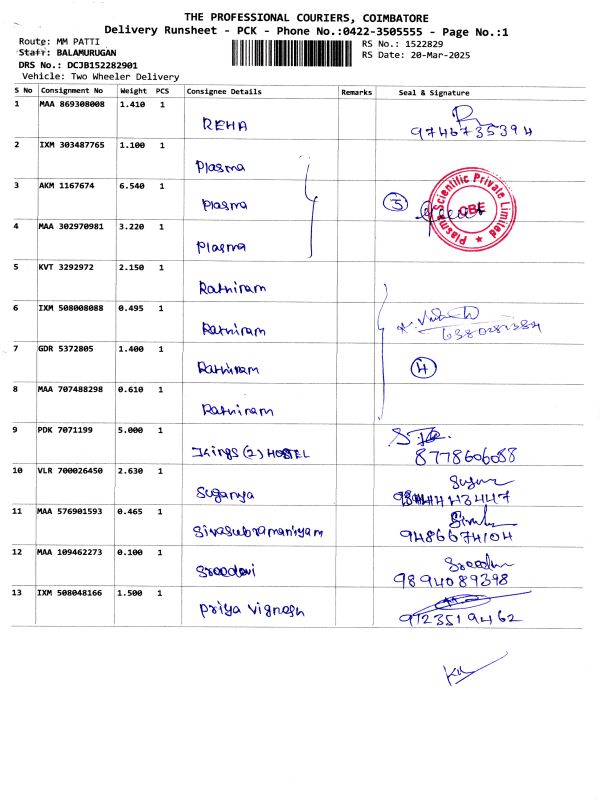 THE PROFESSIONAL COURIERS, COIMBATORE
Delivery Runsheet - PCK - Phone No.:0422-3505555 - Page No.:1
Route: MM PATTI
RS No.: 1522829
Staff: BALAMURUGAN
RS Date: 20-Mar-2025
DRS No.: DCJB152282901
Vehicle: Two Wheeler Delivery
S No Consignment No Weight PCS Consignee Details Remarks Seal & Signature
1 MAA 869308008 1.410 1 REHA
9746735394
2 IXM 303487765 1.100 1 Plasma
3 AKM 1167674 6.540 1 Plasma
Plasma Scientific Private Limited
CBE
4 MAA 302970981 3.220 1 Plasma
5 KVT 3292972 2.150 1 Rathiram
6 IXM 508008088 0.495 1 Rathiram
7 GDR 5372805 1.400 1 Rathiram
4
8 MAA 707488298 0.610 1 Rathiram
9 PDK 7071199 5.000 1 Kings (2) HOSTEL
8778606088
10 VLR 700026450 2.630 1 Suganya
11 MAA 576901593 0.465 1 Sivasubramaniyam
9486674104
12 MAA 109462273 0.100 1 Sreedevi
Sreedevi
9894089398
13 IXM 508048166 1.500 1 Priya Vignesh
9123519462